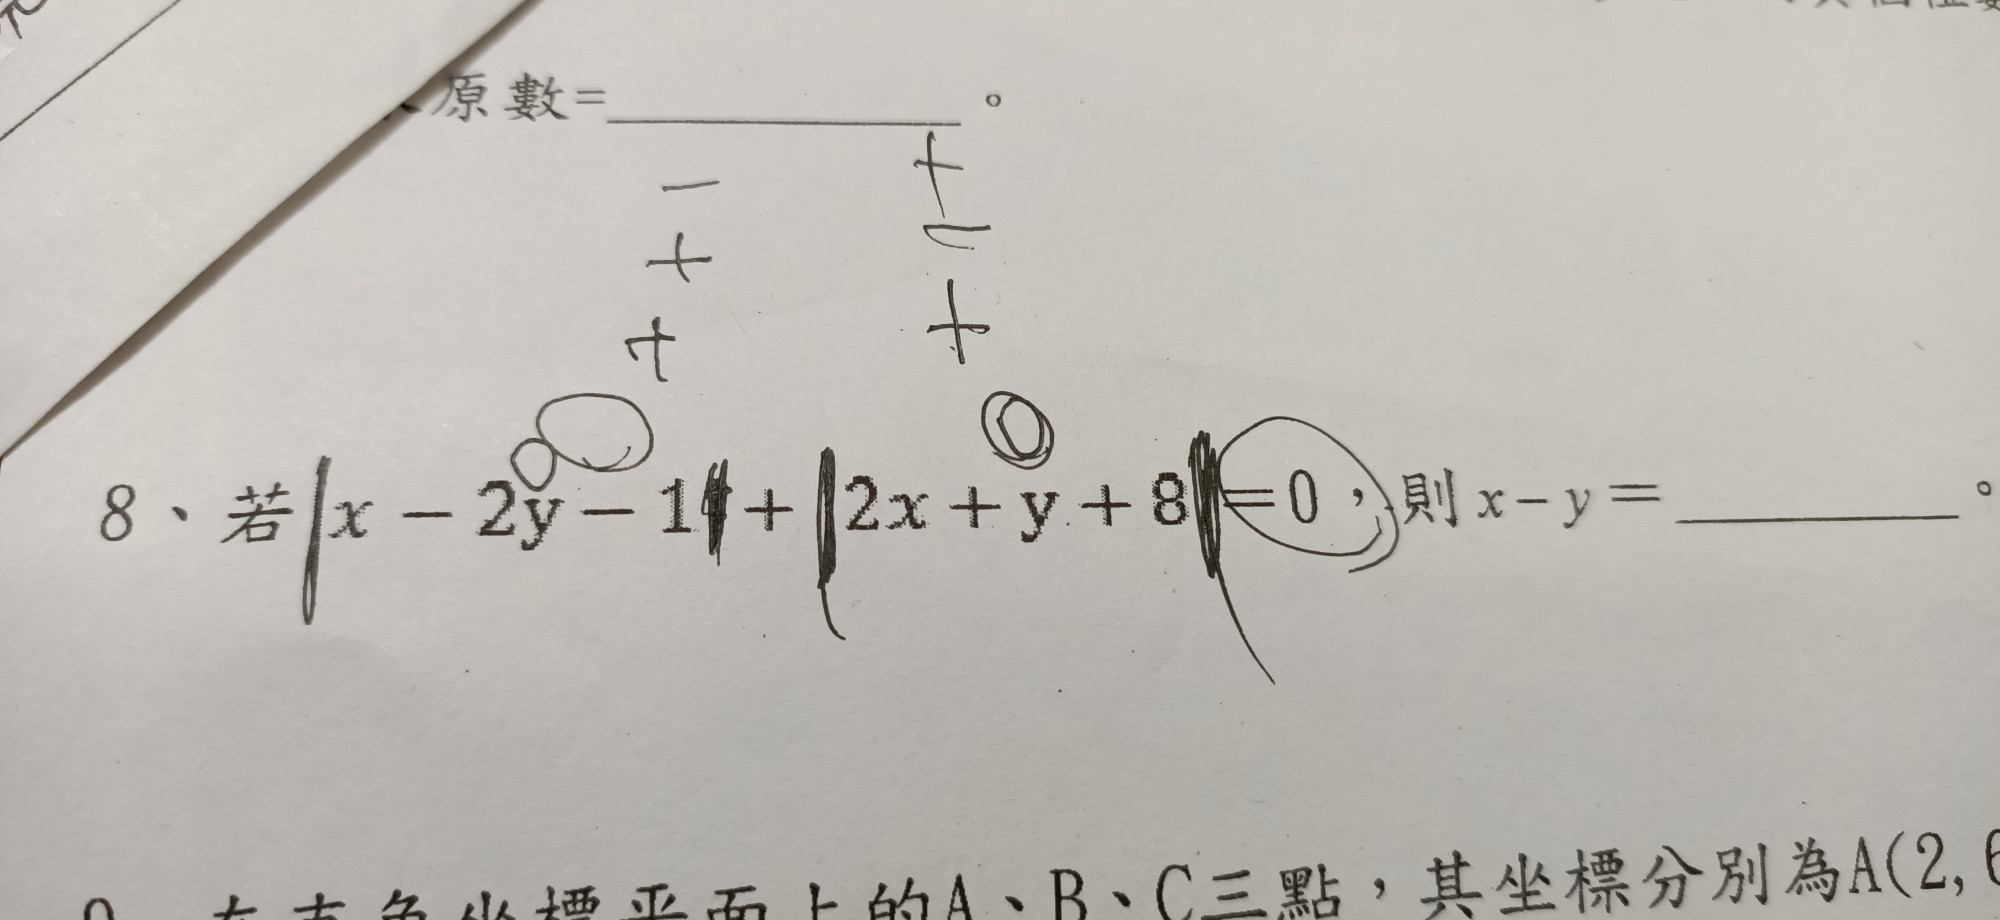 原數=________。
−  +
+  −
+  +
0  0
8、若|x − 2y − 1| + |2x + y + 8|=0，則 x − y = ________。
在直角坐標平面上的A、B、C三點，其坐標分別為A(2, 6